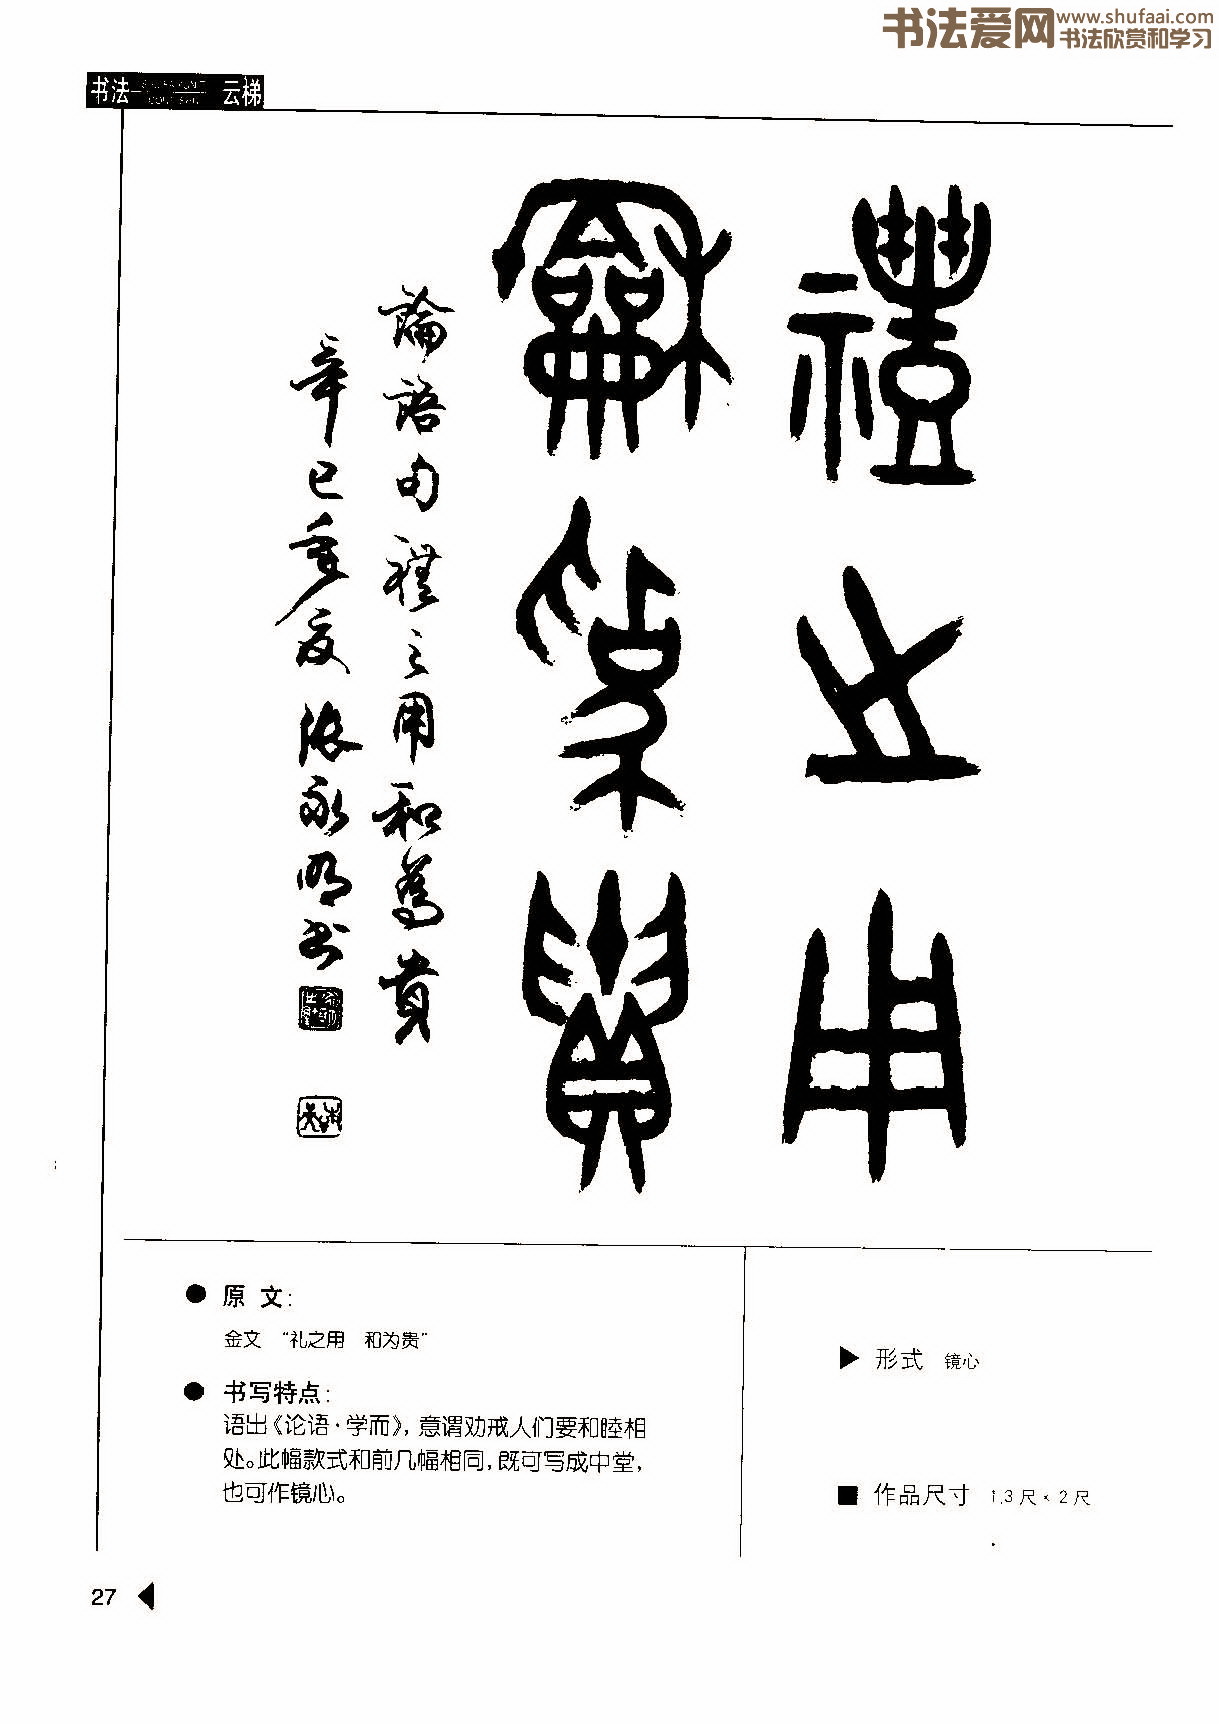 书法爱网 www.shufaai.com
书法欣赏和学习
书法 云梯
禮之用
龢為貴
論語句禮之用和為貴
辛巳重夏張永明书
● 原 文：
金文 “礼之用 和为贵”
● 书写特点：
语出《论语·学而》，意谓劝戒人们要和睦相
处。此幅款式和前几幅相同，既可写成中堂，
也可作镜心。
▶ 形式 镜心
■ 作品尺寸 1.3尺×2尺
27 ◀